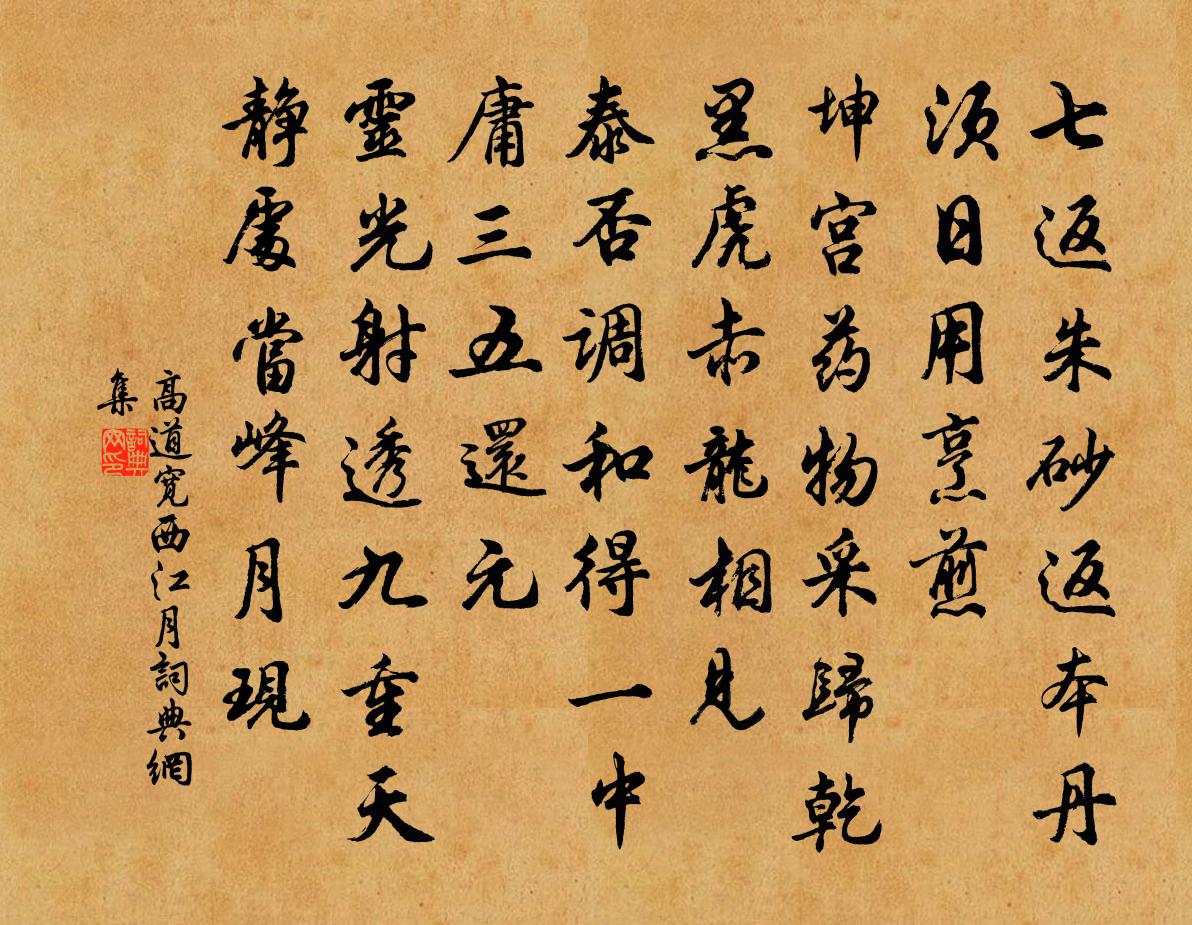 七返朱砂返本丹
须日用烹煎
坤宫药物采歸乾
黑虎赤龍相見
泰否调和得一中
庸三五還元
靈光射透九重天
靜處當峰月現
高道宽西江月詞典網
集
詞典網印